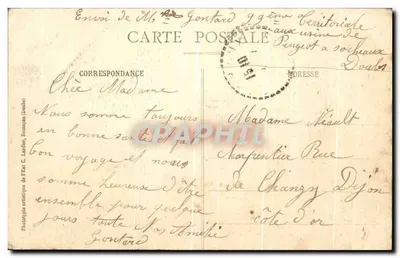 Envoi de Mr Gontard 99ème Territoriale
aux usine de
Peugeot a Sochaux
Doubs
CARTE POSTALE
CORRESPONDANCE
ADRESSE
Chee Madame
Nous somme toujours
en bonne sante
bon voyage et nous
somme heureuse d'être
ensemble pour quelque
jours toute Nos Amitie
Gontard
Madame
Rue
de Chanzy Dijon
côte d'or
Phototypie artistique de l'Est C. Lardier, Besançon (Doubs)
CPAPHIL